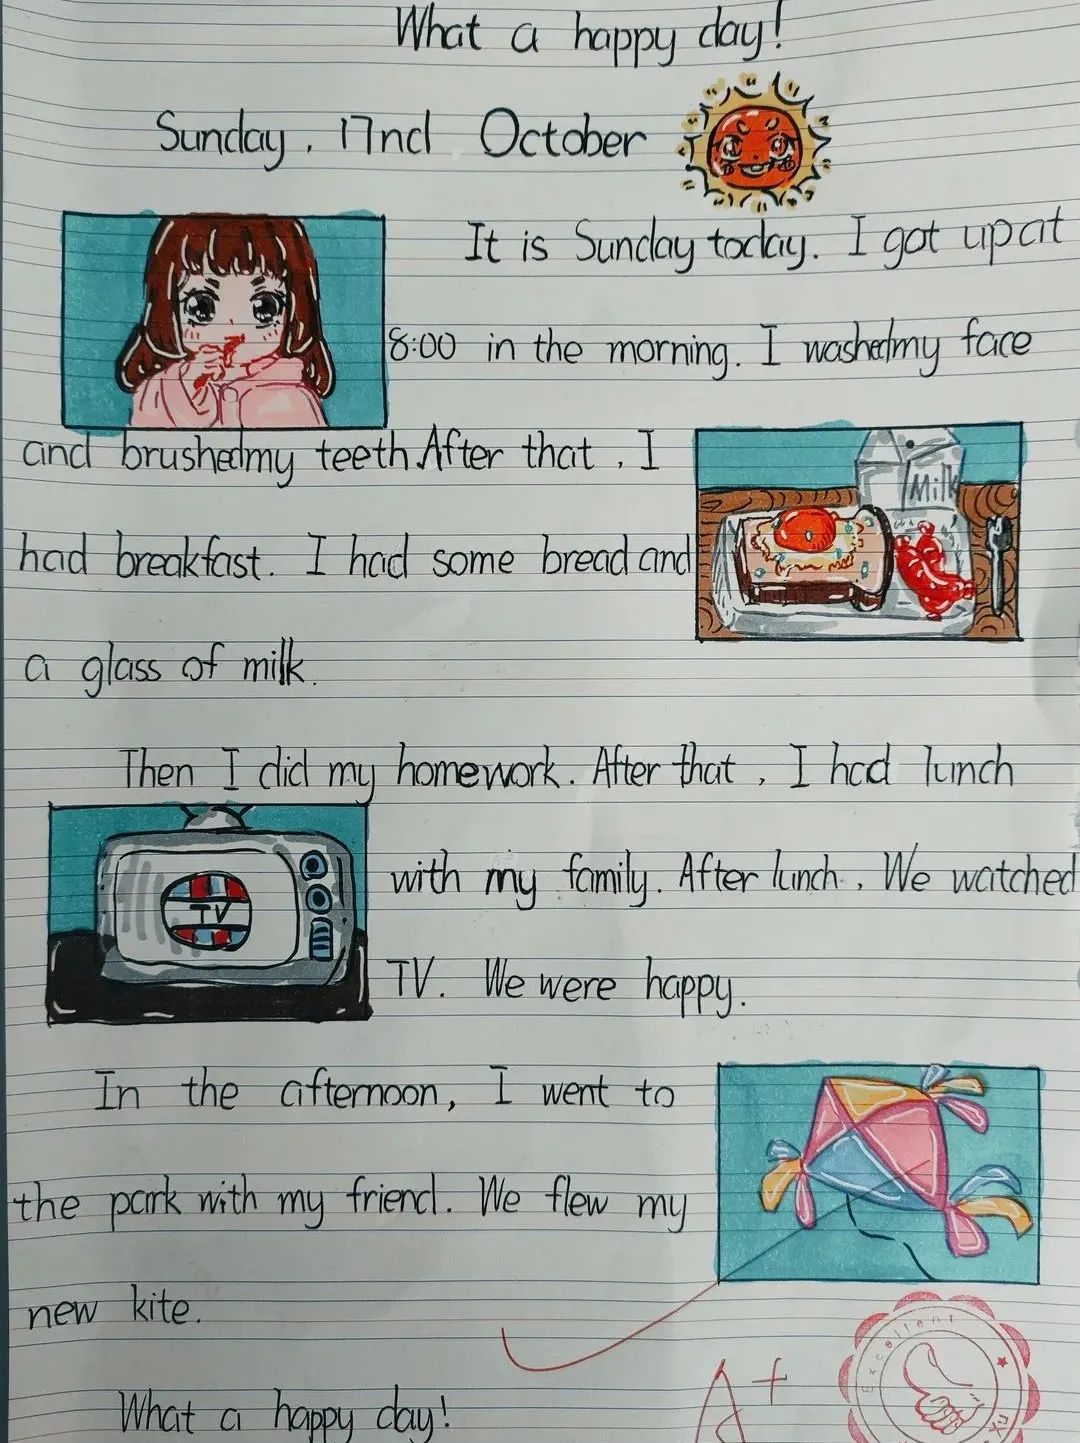 What a happy day!
Sunday, 17nd October
It is Sunday today. I got up at
8:00 in the morning. I washed my face
and brushed my teeth. After that, I
Milk
had breakfast. I had some bread and
a glass of milk.
Then I did my homework. After that, I had lunch
with my family. After lunch, We watched
TV
TV. We were happy.
In the afternoon, I went to
the park with my friend. We flew my
new kite.
Excellent
A+
What a happy day!